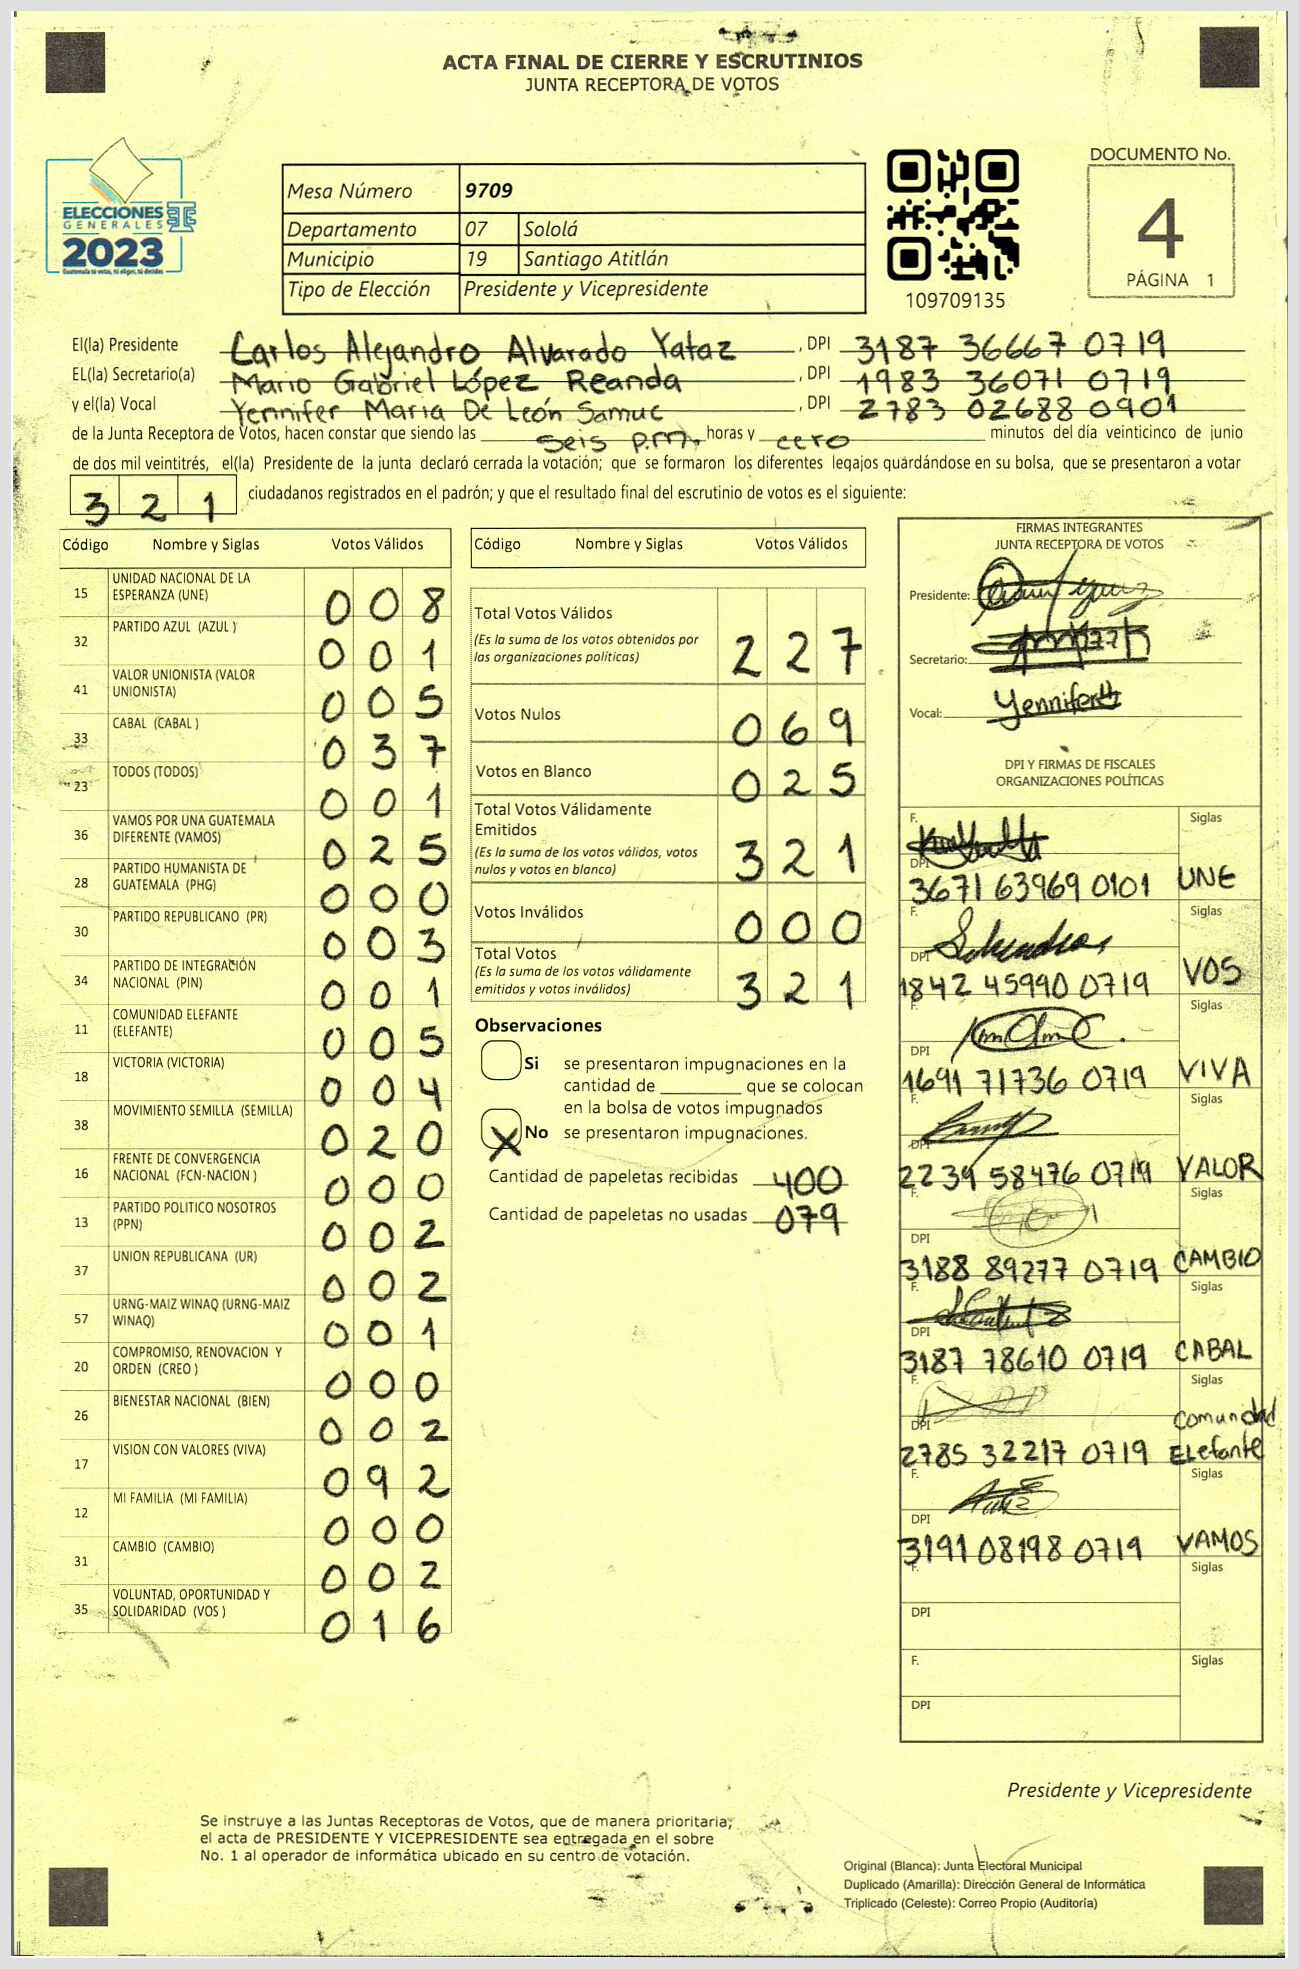 ACTA FINAL DE CIERRE Y ESCRUTINIOS
JUNTA RECEPTORA DE VOTOS
ELECCIONES
GENERALES
2023
Guatemala te votas, tú eliges, tú decides
Mesa Número 9709
Departamento 07 Sololá
Municipio 19 Santiago Atitlán
Tipo de Elección Presidente y Vicepresidente
109709135
DOCUMENTO No.
4
PÁGINA 1
El(la) Presidente Carlos Alejandro Alvarado Yataz , DPI 3187 36667 0719
EL(la) Secretario(a) Mario Gabriel López Reanda , DPI 1983 36071 0719
y el(la) Vocal Yennifer Maria De León Samuc , DPI 2783 02688 0901
de la Junta Receptora de Votos, hacen constar que siendo las seis p.m. horas y cero minutos del día veinticinco de junio
de dos mil veintitrés, el(la) Presidente de la junta declaró cerrada la votación; que se formaron los diferentes legajos quardándose en su bolsa, que se presentaron a votar
3 2 1 ciudadanos registrados en el padrón; y que el resultado final del escrutinio de votos es el siguiente:
Código Nombre y Siglas Votos Válidos
15 UNIDAD NACIONAL DE LA ESPERANZA (UNE) 0 0 8
32 PARTIDO AZUL (AZUL ) 0 0 1
41 VALOR UNIONISTA (VALOR UNIONISTA) 0 0 5
33 CABAL (CABAL ) 0 3 7
23 TODOS (TODOS) 0 0 1
36 VAMOS POR UNA GUATEMALA DIFERENTE (VAMOS) 0 2 5
28 PARTIDO HUMANISTA DE GUATEMALA (PHG) 0 0 0
30 PARTIDO REPUBLICANO (PR) 0 0 3
34 PARTIDO DE INTEGRACIÓN NACIONAL (PIN) 0 0 1
11 COMUNIDAD ELEFANTE (ELEFANTE) 0 0 5
18 VICTORIA (VICTORIA) 0 0 4
38 MOVIMIENTO SEMILLA (SEMILLA) 0 2 0
16 FRENTE DE CONVERGENCIA NACIONAL (FCN-NACION ) 0 0 0
13 PARTIDO POLITICO NOSOTROS (PPN) 0 0 2
37 UNION REPUBLICANA (UR) 0 0 2
57 URNG-MAIZ WINAQ (URNG-MAIZ WINAQ) 0 0 1
20 COMPROMISO, RENOVACION Y ORDEN (CREO ) 0 0 0
26 BIENESTAR NACIONAL (BIEN) 0 0 2
17 VISION CON VALORES (VIVA) 0 9 2
12 MI FAMILIA (MI FAMILIA) 0 0 0
31 CAMBIO (CAMBIO) 0 0 2
35 VOLUNTAD, OPORTUNIDAD Y SOLIDARIDAD (VOS ) 0 1 6
Código Nombre y Siglas Votos Válidos
Total Votos Válidos
(Es la suma de los votos obtenidos por
las organizaciones políticas) 2 2 7
Votos Nulos 0 6 9
Votos en Blanco 0 2 5
Total Votos Válidamente
Emitidos
(Es la suma de los votos válidos, votos
nulos y votos en blanco) 3 2 1
Votos Inválidos 0 0 0
Total Votos
(Es la suma de los votos válidamente
emitidos y votos inválidos) 3 2 1
Observaciones
Si se presentaron impugnaciones en la
cantidad de ________ que se colocan
en la bolsa de votos impugnados
X No se presentaron impugnaciones.
Cantidad de papeletas recibidas 400
Cantidad de papeletas no usadas 079
FIRMAS INTEGRANTES
JUNTA RECEPTORA DE VOTOS
Presidente:
Secretario:
Vocal: Yennifer
DPI Y FIRMAS DE FISCALES
ORGANIZACIONES POLÍTICAS
F. Siglas
DPI 3671 63969 0101 UNE
F. Siglas
DPI 1842 45990 0719 VOS
F. Siglas
DPI 1691 71736 0719 VIVA
F. Siglas
DPI 2239 58476 0719 VALOR
F. Siglas
DPI 3188 89277 0719 CAMBIO
F. Siglas
DPI 3187 78610 0719 CABAL
F. Siglas
DPI 2785 32217 0719 Comunidad ELefante
F. Siglas
DPI 3191 08198 0719 VAMOS
F. Siglas
DPI
F. Siglas
DPI
Presidente y Vicepresidente
Se instruye a las Juntas Receptoras de Votos, que de manera prioritaria,
el acta de PRESIDENTE Y VICEPRESIDENTE sea entregada en el sobre
No. 1 al operador de informática ubicado en su centro de votación.
Original (Blanca): Junta Electoral Municipal
Duplicado (Amarilla): Dirección General de Informática
Triplicado (Celeste): Correo Propio (Auditoría)